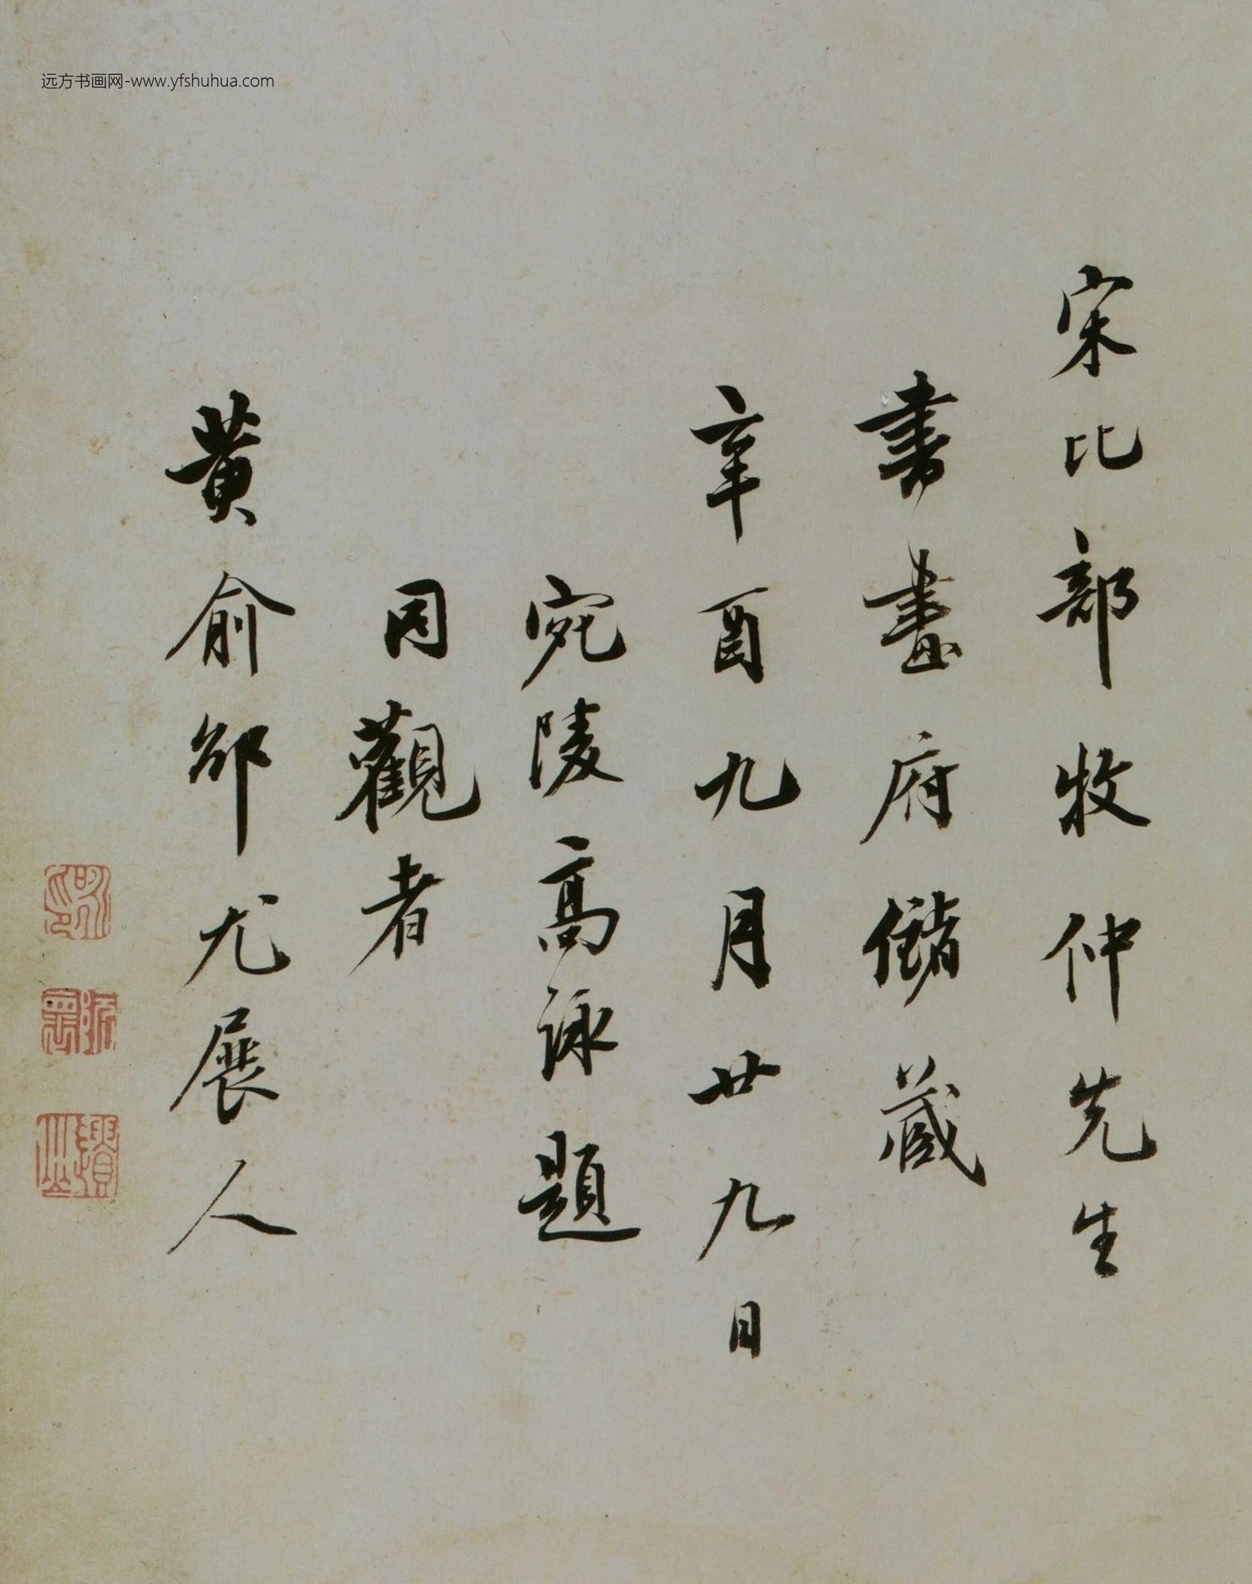 远方书画网-www.yfshuhua.com
宋比部牧仲先生
書畫府儲藏
辛酉九月廿九日
宛陵高詠題
同觀者
黃俞邰尤展人